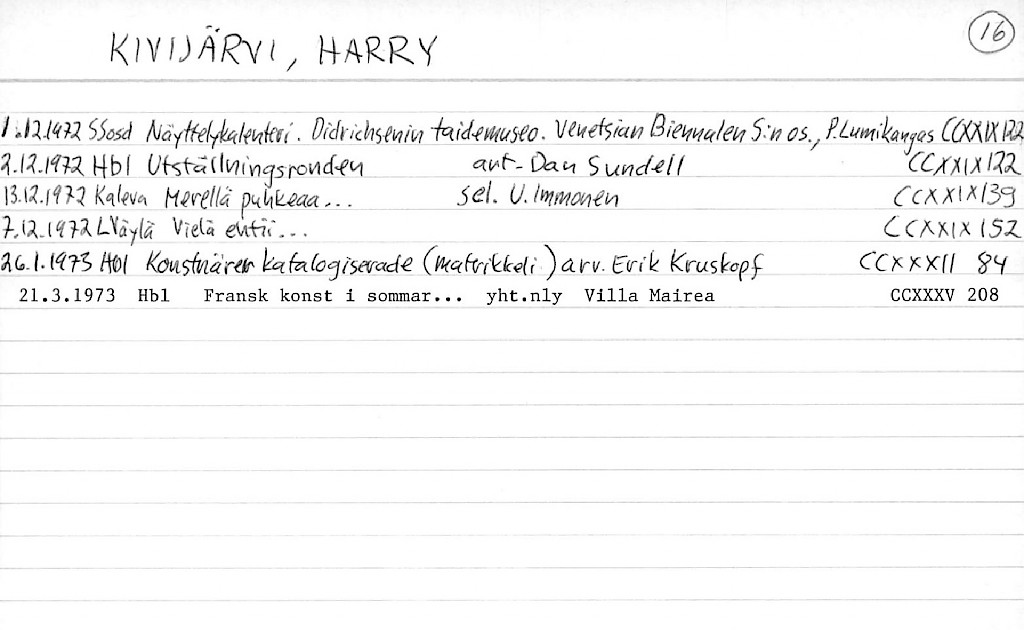 KIVIJÄRVI, HARRY
16
1.12.1972 SSosd Näyttelykalenteri. Didrichsenin taidemuseo. Venetsian Biennalen S:n os., P. Lumikangas CCXXIX 122
2.12.1972 Hbl Utställningsronden ant- Dan Sundell CCXXIX 122
13.12.1972 Kaleva Merellä puhkeaa... sel. U. Immonen CCXXIX 139
7.12.1972 LVäylä Vielä ehtii... CCXXIX 152
26.1.1973 Hbl Konstnärer katalogiserade (matrikkeli) arv. Erik Kruskopf CCXXXII 84
21.3.1973 Hbl Fransk konst i sommar... yht.nly Villa Mairea CCXXXV 208